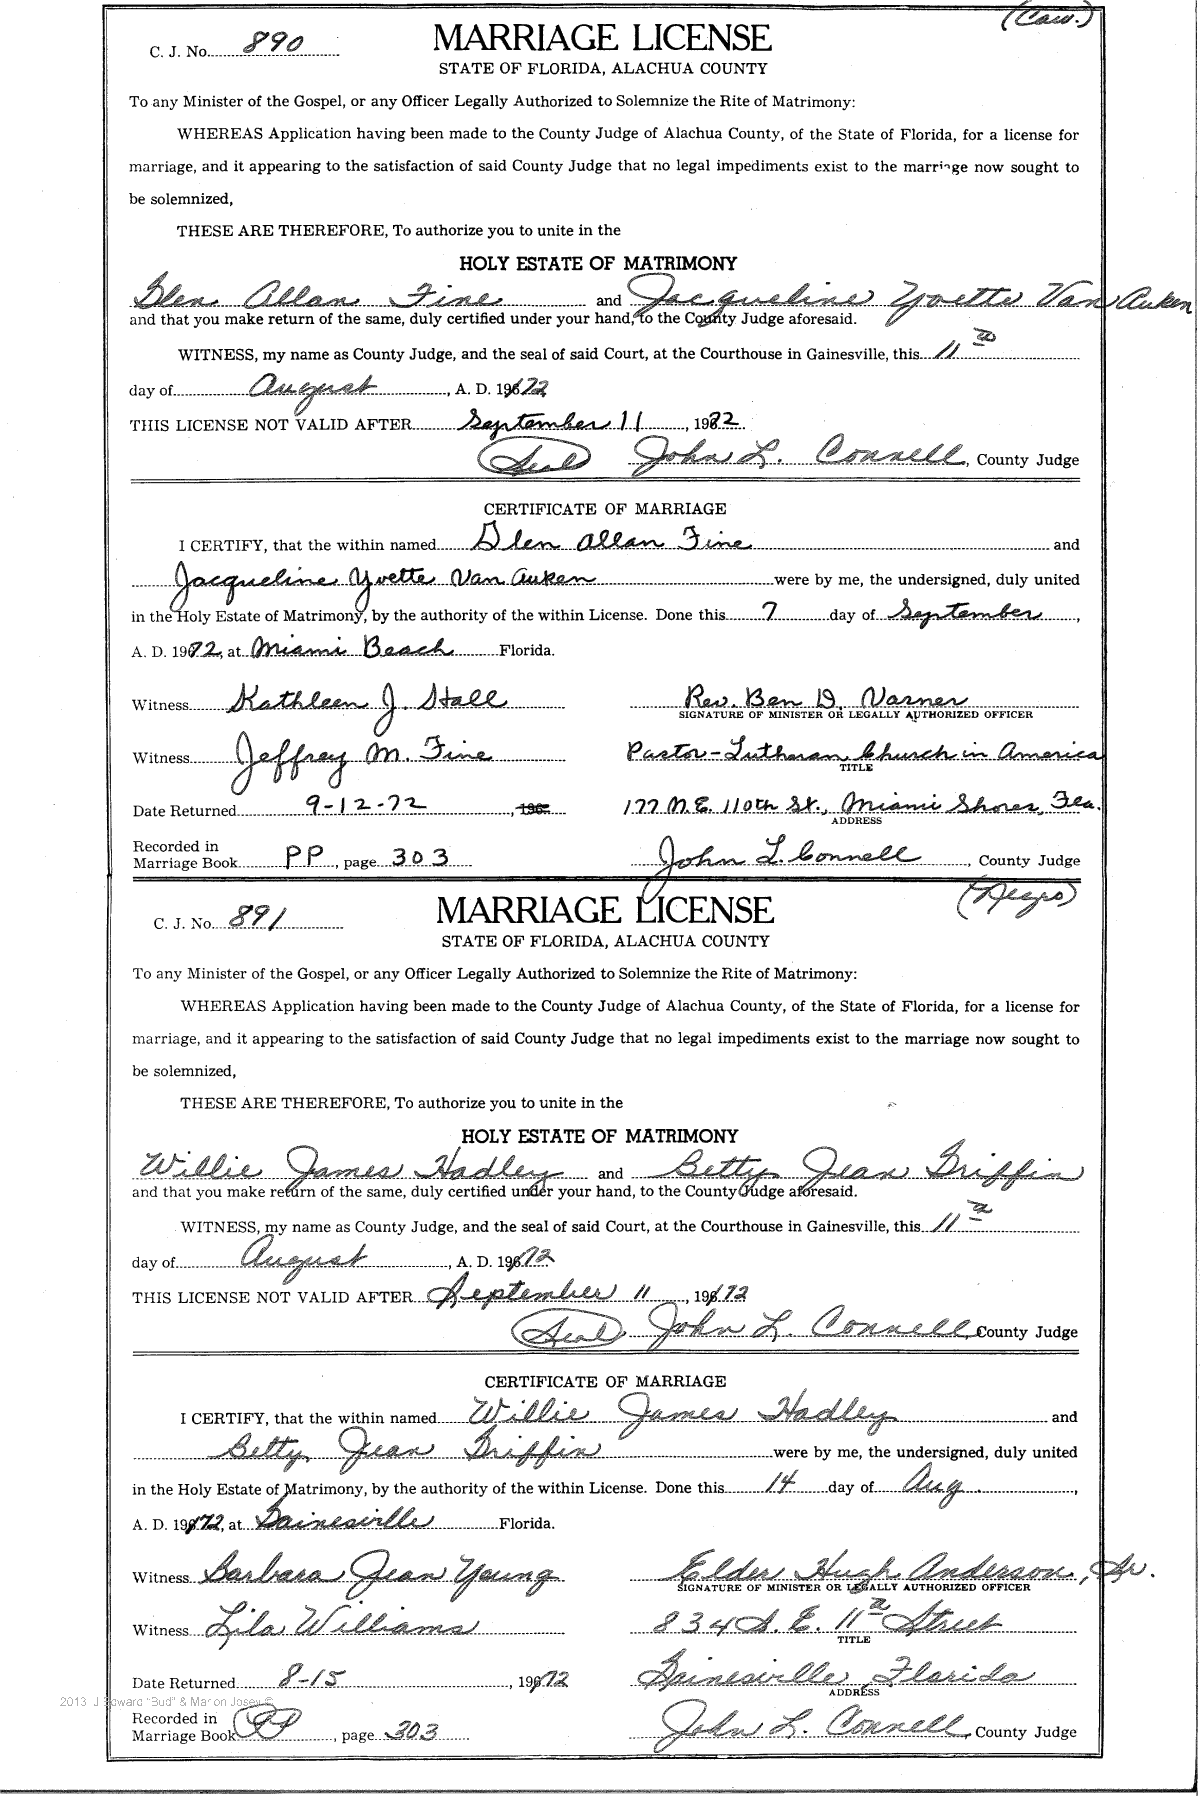 (Cau.)
C. J. No. 890
MARRIAGE LICENSE
STATE OF FLORIDA, ALACHUA COUNTY
To any Minister of the Gospel, or any Officer Legally Authorized to Solemnize the Rite of Matrimony:
WHEREAS Application having been made to the County Judge of Alachua County, of the State of Florida, for a license for
marriage, and it appearing to the satisfaction of said County Judge that no legal impediments exist to the marriage now sought to
be solemnized,
THESE ARE THEREFORE, To authorize you to unite in the
HOLY ESTATE OF MATRIMONY
Glen Allan Fine and Jacqueline Yvette Van Auken
and that you make return of the same, duly certified under your hand, to the County Judge aforesaid.
WITNESS, my name as County Judge, and the seal of said Court, at the Courthouse in Gainesville, this 11th
day of August, A. D. 1972
THIS LICENSE NOT VALID AFTER September 11, 1972
(Seal) John L. Connell, County Judge
CERTIFICATE OF MARRIAGE
I CERTIFY, that the within named Glen Allan Fine and
Jacqueline Yvette Van Auken were by me, the undersigned, duly united
in the Holy Estate of Matrimony, by the authority of the within License. Done this 7 day of September,
A. D. 1972, at Miami Beach Florida.
Witness Kathleen J. Stall Rev. Ben D. Varner
SIGNATURE OF MINISTER OR LEGALLY AUTHORIZED OFFICER
Witness Jeffrey M. Fine Pastor-Lutheran Church in America
TITLE
Date Returned 9-12-72, 196 177 N.E. 110th St., Miami Shores, Fla.
ADDRESS
Recorded in
Marriage Book PP, page 303 John L. Connell, County Judge
(Negro)
C. J. No. 891
MARRIAGE LICENSE
STATE OF FLORIDA, ALACHUA COUNTY
To any Minister of the Gospel, or any Officer Legally Authorized to Solemnize the Rite of Matrimony:
WHEREAS Application having been made to the County Judge of Alachua County, of the State of Florida, for a license for
marriage, and it appearing to the satisfaction of said County Judge that no legal impediments exist to the marriage now sought to
be solemnized,
THESE ARE THEREFORE, To authorize you to unite in the
HOLY ESTATE OF MATRIMONY
Willie James Hadley and Betty Jean Griffin
and that you make return of the same, duly certified under your hand, to the County Judge aforesaid.
WITNESS, my name as County Judge, and the seal of said Court, at the Courthouse in Gainesville, this 11th
day of August, A. D. 1972
THIS LICENSE NOT VALID AFTER September 11, 1972
(Seal) John L. Connell, County Judge
CERTIFICATE OF MARRIAGE
I CERTIFY, that the within named Willie James Hadley and
Betty Jean Griffin were by me, the undersigned, duly united
in the Holy Estate of Matrimony, by the authority of the within License. Done this 14 day of Aug.,
A. D. 1972, at Gainesville Florida.
Witness Barbara Jean Young Elder Hugh Anderson, Sr.
SIGNATURE OF MINISTER OR LEGALLY AUTHORIZED OFFICER
Witness Lila Williams 834 S. E. 11th Street
TITLE
Date Returned 8-15, 1972 Gainesville, Florida
ADDRESS
2013 J Edward "Bud" & Marion Josey ©
Recorded in
Marriage Book PP, page 303 John L. Connell, County Judge